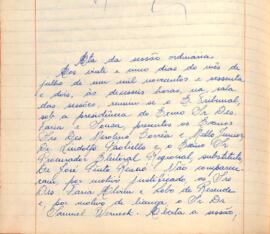 Ata da sessão ordinaria
Aos vinte e cinco dias do mês de
julho de um mil novecentos e sessenta
e dois, às dezesseis horas, na sala
das sessões, reuniu-se o E. Tribunal,
sob a presidência do Exmo Sr. Des.
Faria e Sousa, presentes os Exmos
Srs. Des. Merolino Corrêa e Mello Junior,
Dr. Rudolfo Paolielo e, o Exmo Sr.
Procurador Eleitoral Regional, substituto,
Dr. José Pinto Renó. Não compare-
ceram, por motivo justificado, os Srs
Des. Faria Alvim e Helio de Resende
e, por motivo de licença, o Sr. Dr.
Samuel Werneck. Aberta a sessão,